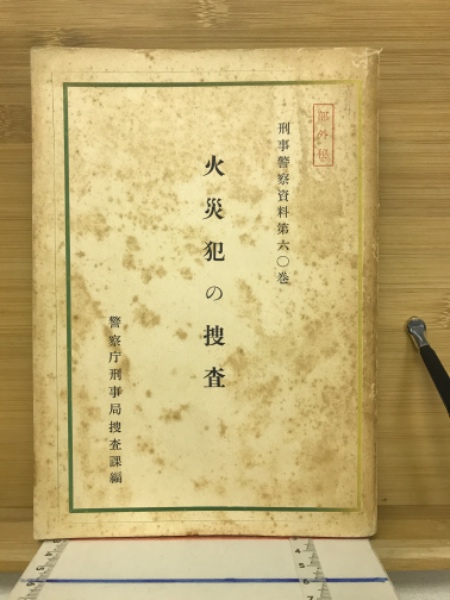 部外秘
刑事警察資料第六〇巻
火災犯の捜査
警察庁刑事局捜査課編
4
5
6
7